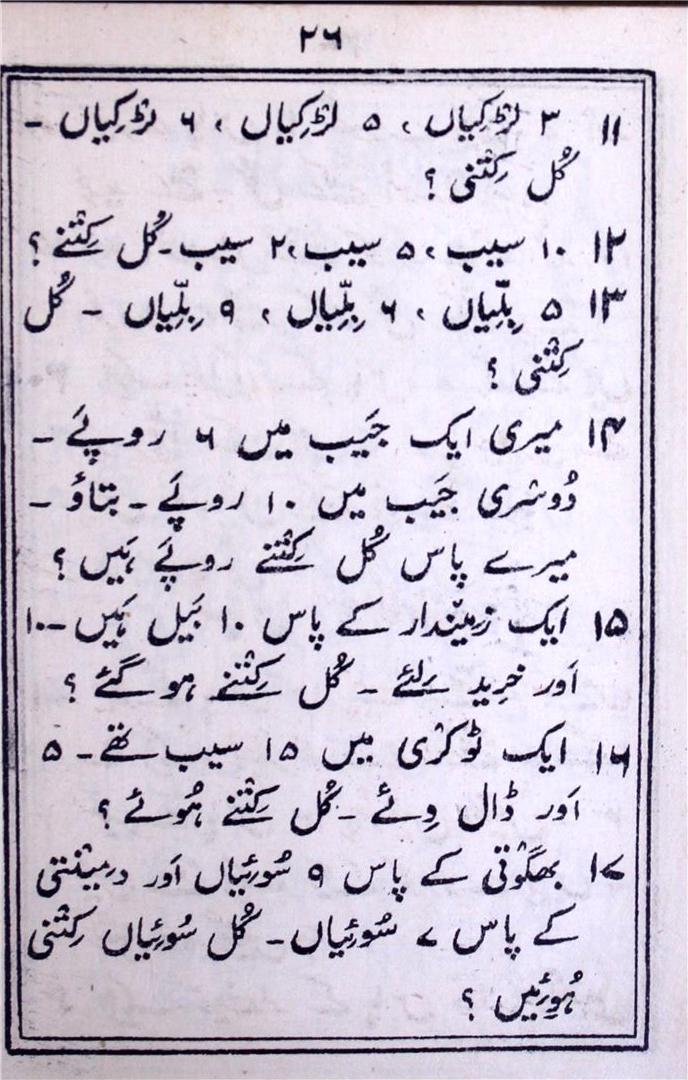 ۲۶
۱۱ ۳ لڑکیاں ، ۵ لڑکیاں ، ۶ لڑکیاں ۔
کُل کِتْنی ؟
۱۲ ۱۰ سیب ، ۵ سیب ، ۲ سیب ۔ کُل کِتْنے ؟
۱۳ ۵ بِلّیاں ، ۶ بِلّیاں ، ۹ بِلّیاں ۔ کُل
کِتْنی ؟
۱۴ میری ایک جَیب میں ۶ روپَے ۔
دُوسْری جَیب میں ۱۰ روپَے ۔ بتاؤ ۔
میرے پاس کُل کِتْنے روپَے ہَیں ؟
۱۵ ایک زمِیندار کے پاس ۱۰ بَیل ہَیں ۔ ۱۰
اَور خرِید لِئے ۔ کُل کِتْنے ہو گئے ؟
۱۶ ایک ٹوکْری میں ۱۵ سیب تھے ۔ ۵
اَور ڈال دِئے ۔ کُل کِتْنے ہُوئے ؟
۱۷ بھگَوْتی کے پاس ۹ سُوئیاں اَور دمینْتی
کے پاس ۷ سُوئیاں ۔ کُل سُوئیاں کِتْنی
ہُوئِیں ؟